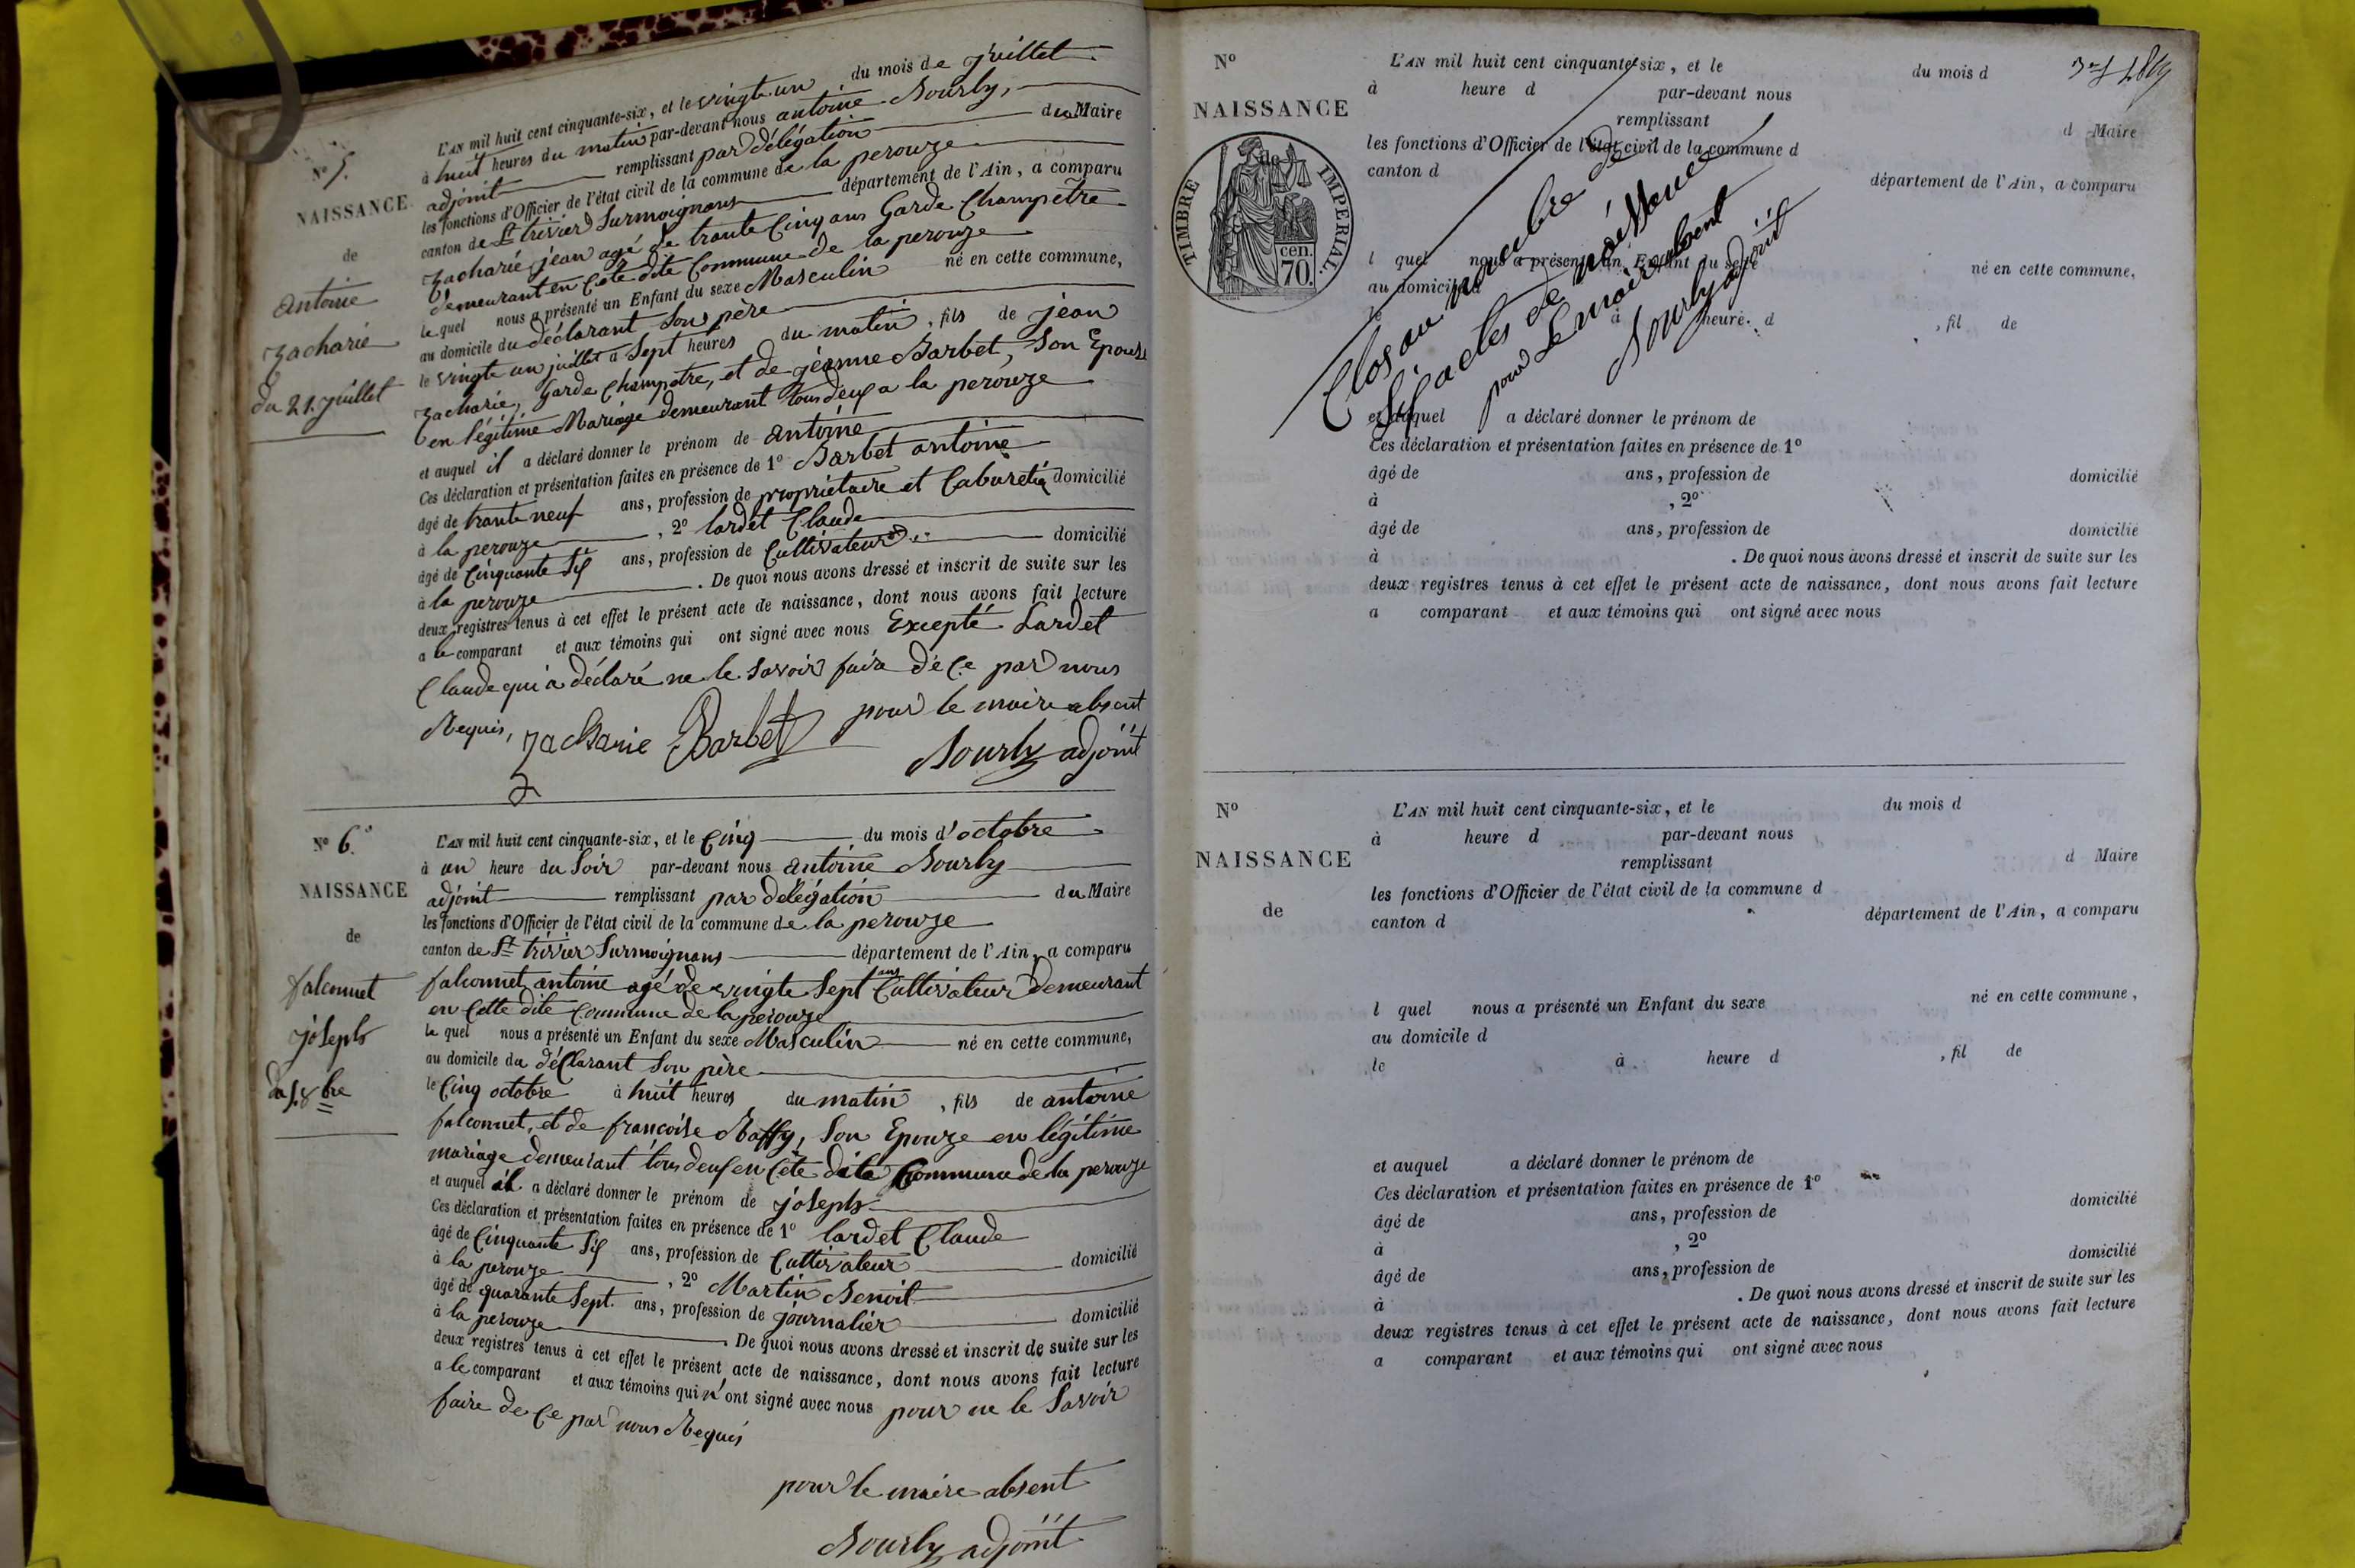 N° 5.
NAISSANCE
de
antoine
Zacharie
du 21. juillet
L'AN mil huit cent cinquante-six, et le vingte un du mois de juillet
à huit heures du matin par-devant nous antoine Bourly,
adjoint remplissant par délégation du Maire
les fonctions d'Officier de l'état civil de la commune de la perouze
canton de St trivier Surmoignans département de l'Ain, a comparu
Zacharie jean agé de trante Cinq ans Garde Champêtre
demeurant en Cete dite Commune de la perouze
le quel nous a présenté un Enfant du sexe Masculin né en cette commune,
au domicile du déclarant Son père
le vingte un juillet à Sept heures du matin, fils de jean
Zacharie, Garde Champetre, et de jeanne Barbet, Son Epouze
en légitime Mariage demeurant tous deux a la perouze
et auquel il a déclaré donner le prénom de antoine
Ces déclaration et présentation faites en présence de 1° Barbet antoine
âgé de trante neuf ans, profession de propriétaire et Cabaretié domicilié
à la perouze, 2° lardet Claude
âgé de Cinquante Six ans, profession de Cultivateur domicilié
à la perouze. De quoi nous avons dressé et inscrit de suite sur les
deux registres tenus à cet effet le présent acte de naissance, dont nous avons fait lecture
a le comparant et aux témoins qui ont signé avec nous Excepté Lardet
Claude qui a déclaré ne le Savoir faire de Ce par nous
Requis,
Zacharie Barbet
pour le maire absent
Bourly adjoint
N° 6.
NAISSANCE
de
falconnet
joseph
du 5. 8bre
L'AN mil huit cent cinquante-six, et le Cinq du mois d'octobre
à un heure du Soir par-devant nous antoine Bourly
adjoint remplissant par délégation du Maire
les fonctions d'Officier de l'état civil de la commune de la perouze
canton de St trivier Surmoignans département de l'Ain, a comparu
falconnet antoine agé de vingte Sept ans Cultivateur demeurant
en Cette dite Commune de la perouze
le quel nous a présenté un Enfant du sexe Masculin né en cette commune,
au domicile du déClarant Son père
le Cinq octobre à huit heures du matin, fils de antoine
falconnet, et de francoise Raffy, Son Epouze en légitime
mariage demeurant tous deux en Cete dite Commune de la perouze
et auquel il a déclaré donner le prénom de joseph
Ces déclaration et présentation faites en présence de 1° lardet Claude
âgé de Cinquante Six ans, profession de Cultivateur domicilié
à la perouze, 2° Martin Benoit
âgé de quarante Sept. ans, profession de journalier domicilié
à la perouze. De quoi nous avons dressé et inscrit de suite sur les
deux registres tenus à cet effet le présent acte de naissance, dont nous avons fait lecture
a le comparant et aux témoins qui n'ont signé avec nous pour ne le Savoir
faire de Ce par nous Requis
pour le maire absent
Bourly adjoint
N°
NAISSANCE
de
TIMBRE IMPERIAL.
70 cen.
L'AN mil huit cent cinquante-six, et le du mois d
à heure d par-devant nous
remplissant d Maire
les fonctions d'Officier de l'état civil de la commune d
canton d département de l'Ain, a comparu
l quel nous a présenté un Enfant du sexe né en cette commune,
au domicile d
le à heure d, fil de
Clos au nombre de
Six actes de naissance
pour Le maire absent
Bourly adjoint
et auquel a déclaré donner le prénom de
Ces déclaration et présentation faites en présence de 1°
âgé de ans, profession de domicilié
à, 2°
âgé de ans, profession de domicilié
à. De quoi nous avons dressé et inscrit de suite sur les
deux registres tenus à cet effet le présent acte de naissance, dont nous avons fait lecture
a comparant et aux témoins qui ont signé avec nous
N°
NAISSANCE
de
L'AN mil huit cent cinquante-six, et le du mois d
à heure d par-devant nous
remplissant d Maire
les fonctions d'Officier de l'état civil de la commune d
canton d département de l'Ain, a comparu
l quel nous a présenté un Enfant du sexe né en cette commune,
au domicile d
le à heure d, fil de
et auquel a déclaré donner le prénom de
Ces déclaration et présentation faites en présence de 1°
âgé de ans, profession de domicilié
à, 2°
âgé de ans, profession de domicilié
à. De quoi nous avons dressé et inscrit de suite sur les
deux registres tenus à cet effet le présent acte de naissance, dont nous avons fait lecture
a comparant et aux témoins qui ont signé avec nous